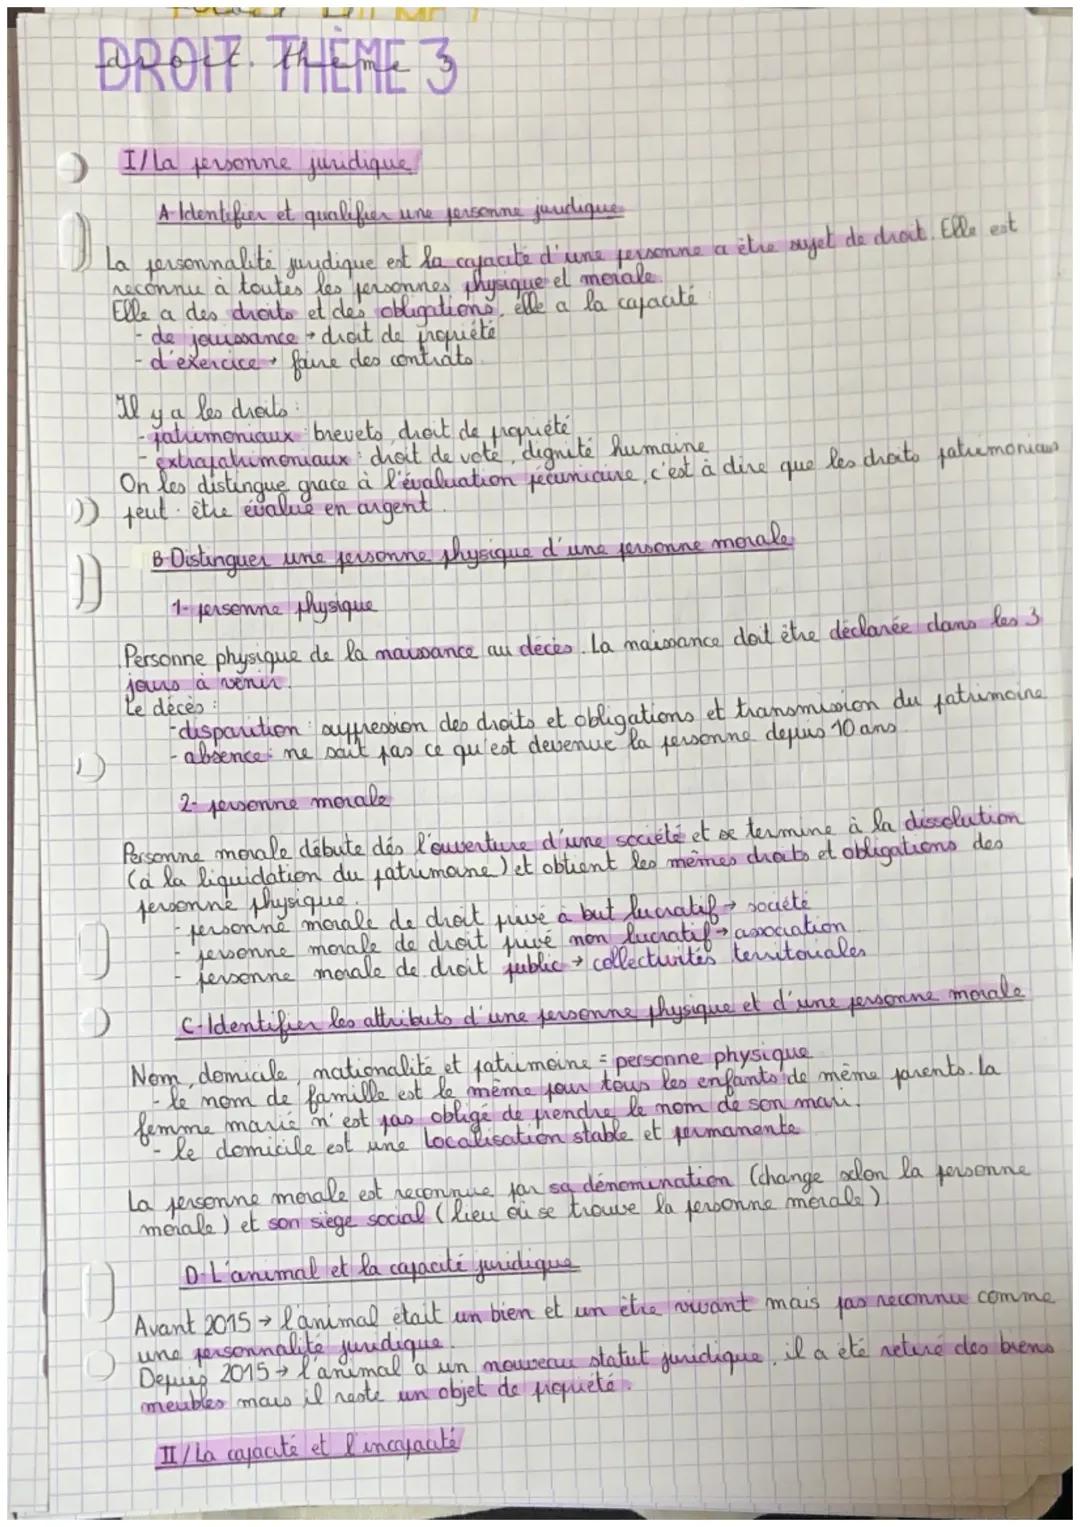 DROIT. THÈME 3
droit. thème 3
I/La personne juridique
A-Identifier et qualifier une personne juridique
La personnalité juridique est la capacité d'une personne a être sujet de droit. Elle est
reconnu à toutes les personnes physique et morale.
Elle a des droits et des obligations, elle a la capacité :
- de jouissance → droit de propriété
- d'exercice → faire des contrats.
Il y a les droits :
- patrimoniaux : brevets, droit de propriété
- extrapatrimoniaux : droit de vote, dignité humaine
On les distingue grace à l'évaluation pécuniaire, c'est à dire que les droits patrimoniaux
peut être évalué en argent.
B-Distinguer une personne physique d'une personne morale
1- personne physique
Personne physique de la naissance au décès. La naissance doit être déclarée dans les 3
jours à venir.
Le décès :
- disparition : suppression des droits et obligations et transmission du patrimoine
- absence : ne sait pas ce qu'est devenue la personne depuis 10 ans.
2- personne morale
Personne morale débute dés l'ouverture d'une société et se termine à la dissolution
(à la liquidation du patrimoine) et obtient les mêmes droits et obligations des
personne physique.
- personne morale de droit privé à but lucratif → société
- personne morale de droit privé non lucratif → association
- personne morale de droit public → collectivités territoriales
C-Identifier les attributs d'une personne physique et d'une personne morale
Nom, domicile, nationalité et patrimoine = personne physique
- le nom de famille est le même pour tous les enfants de même parents. La
femme marié n'est pas obligé de prendre le nom de son mari.
- le domicile est une localisation stable et permanente
La personne morale est reconnue par sa dénomination (change selon la personne
morale) et son siège social (lieu où se trouve la personne morale)
D-L'animal et la capacité juridique
Avant 2015 → l'animal était un bien et un être vivant mais pas reconnu comme
une personnalité juridique.
Depuis 2015 → l'animal a un nouveau statut juridique, il a été retiré des biens
meubles mais il reste un objet de propriété.
II/La capacité et l'incapacité